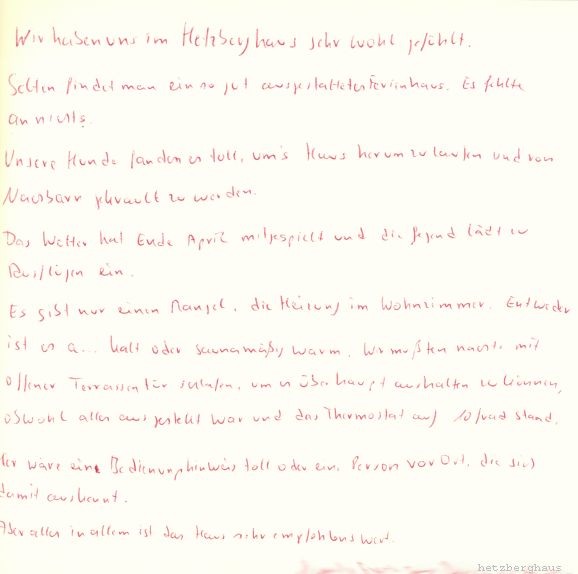 Wir haben uns im Hetzberghaus sehr wohl gefühlt.
Selten findet man ein so gut ausgestattetes Ferienhaus. Es fehlte
an nichts.
Unsere Hunde fanden es toll, um's Haus herumzulaufen und von
Nachbarn gekrault zu werden.
Das Wetter hat Ende April mitgespielt und die Gegend lädt zu
Ausflügen ein.
Es gibt nur einen Mangel, die Heizung im Wohnzimmer. Entweder
ist es a... kalt oder saunamäßig warm. Wir mußten nachts mit
offener Terrassentür schlafen, um es überhaupt aushalten zu können,
obwohl alles ausgestellt war und das Thermostat auf 10 Grad stand.
Hier wäre ein Bedienungshinweis toll oder eine Person vor Ort, die sich
damit auskennt.
Aber alles in allem ist das Haus sehr empfehlenswert.
hetzberghaus